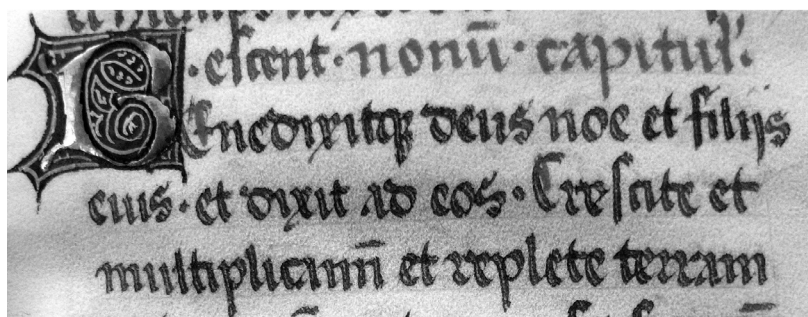 ·escent· nonū· capitul̃.
BEnedixitqꝫ deus noe et filijs
eius· et dixit ad eos· Crescite et
multiplicamī et replete terram